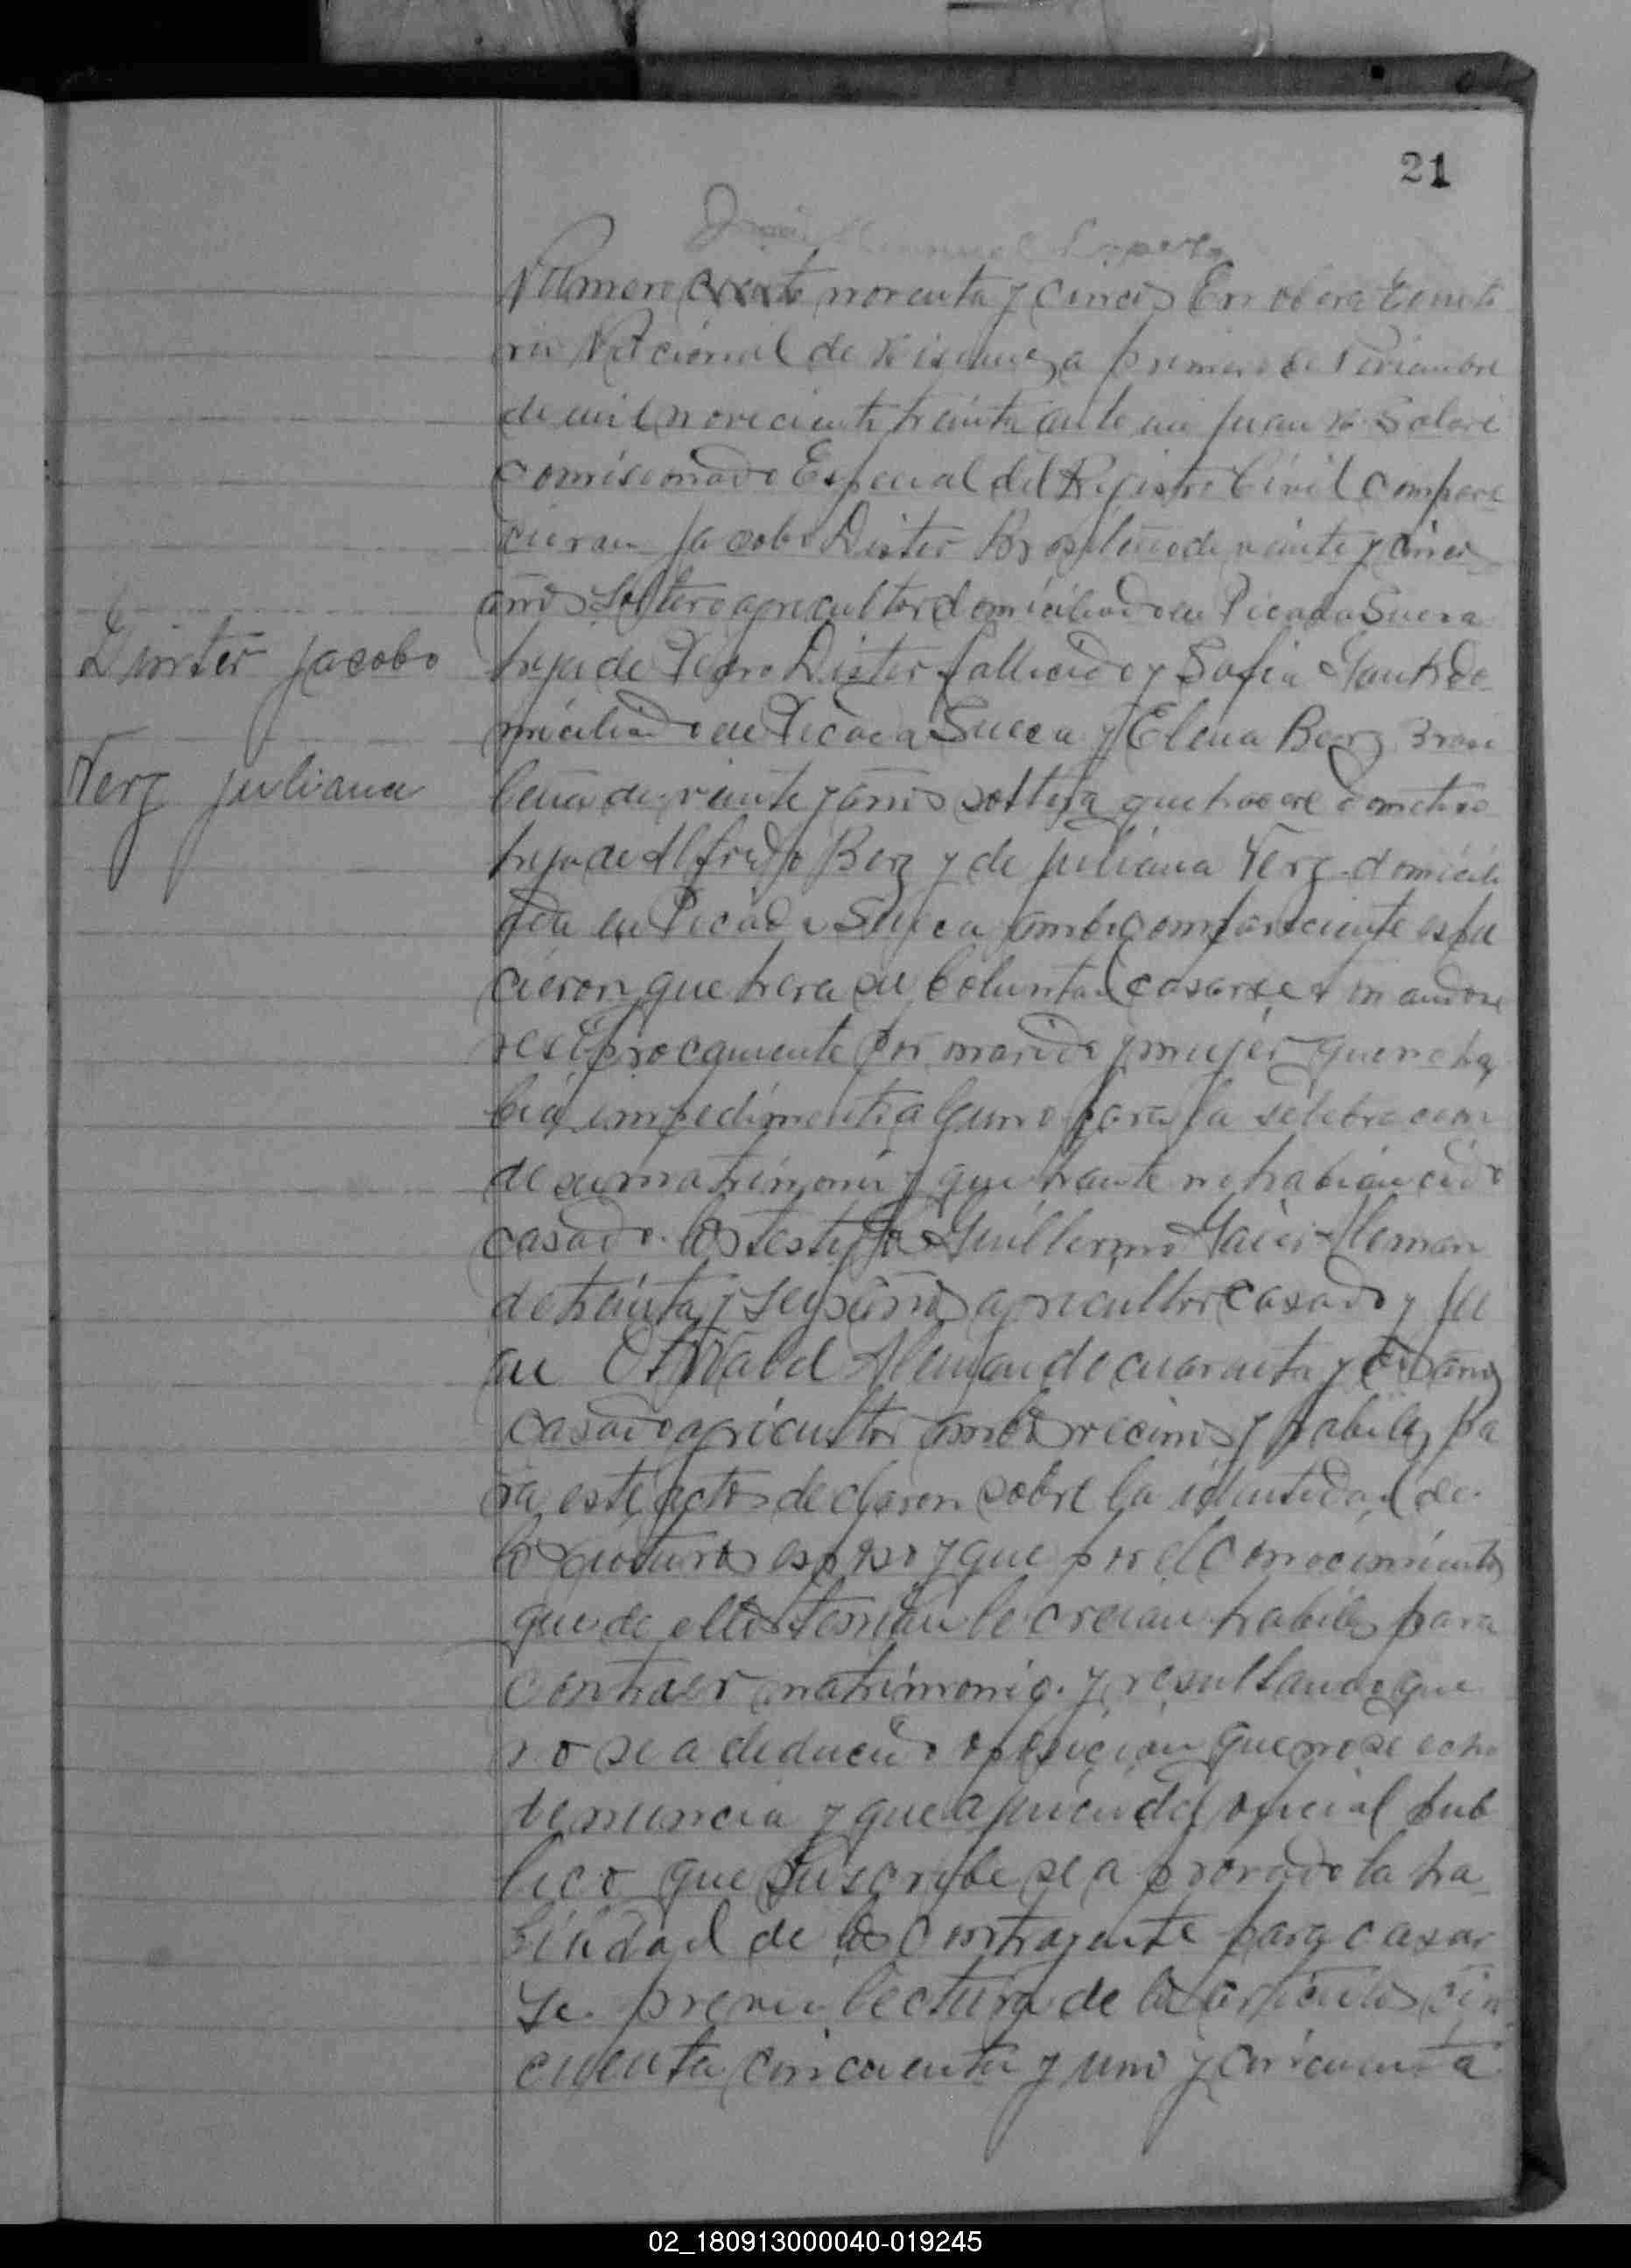 21
Numero ciento noventa y cinco En obera territo
rio Nacional de Misiones a primero de Diciembre
de mil noveciento treinta ante mi Juan B. Solari
comisionado Especial del Registro Civil compare
cieron Jacobo Dister Brasileño de veinte y cinco
años soltero agricultor domiciliado en Picada Sueca
hijo de Pedro Dister fallecido y Sofia do
miciliado en Picada Sueca y Elena Berz Brasi
leña de veinte y años soltera que haceres domestico
hija de Alfredo Berz y de juliana Verz domicili
ada en Picada Sueca ambo compareciente espu
cieron que hera su boluntad casarse tomandose
resiprocamente por marido y mujer que no ha
bia impedimento alguno para la selebracion
de su matrimonio y que hante no habian cido
casado. los testigo Guillermo Maier Aleman
de treinta y seis años agricultor casado y Ju
an Aleman de cuarenta y años
casado agricultor ambos vecinos y habiles pa
ra este acto declaron sobre la identidad de
los futuros esposo y que por el conocimiento
que de ellos tenian le creian habiles para
contraer matrimonio. y resultando que
no se a deducido oposicion que no se echo
denuncia y que a juicio del oficial pub
lico que suscribe se a provado la ha
bilidad de los contrayente para casar
se. previa lectura de los articulos cin
cuenta cincuenta y uno y cincuenta
Dinter Jacobo
Verz juliana
02_180913000040-019245